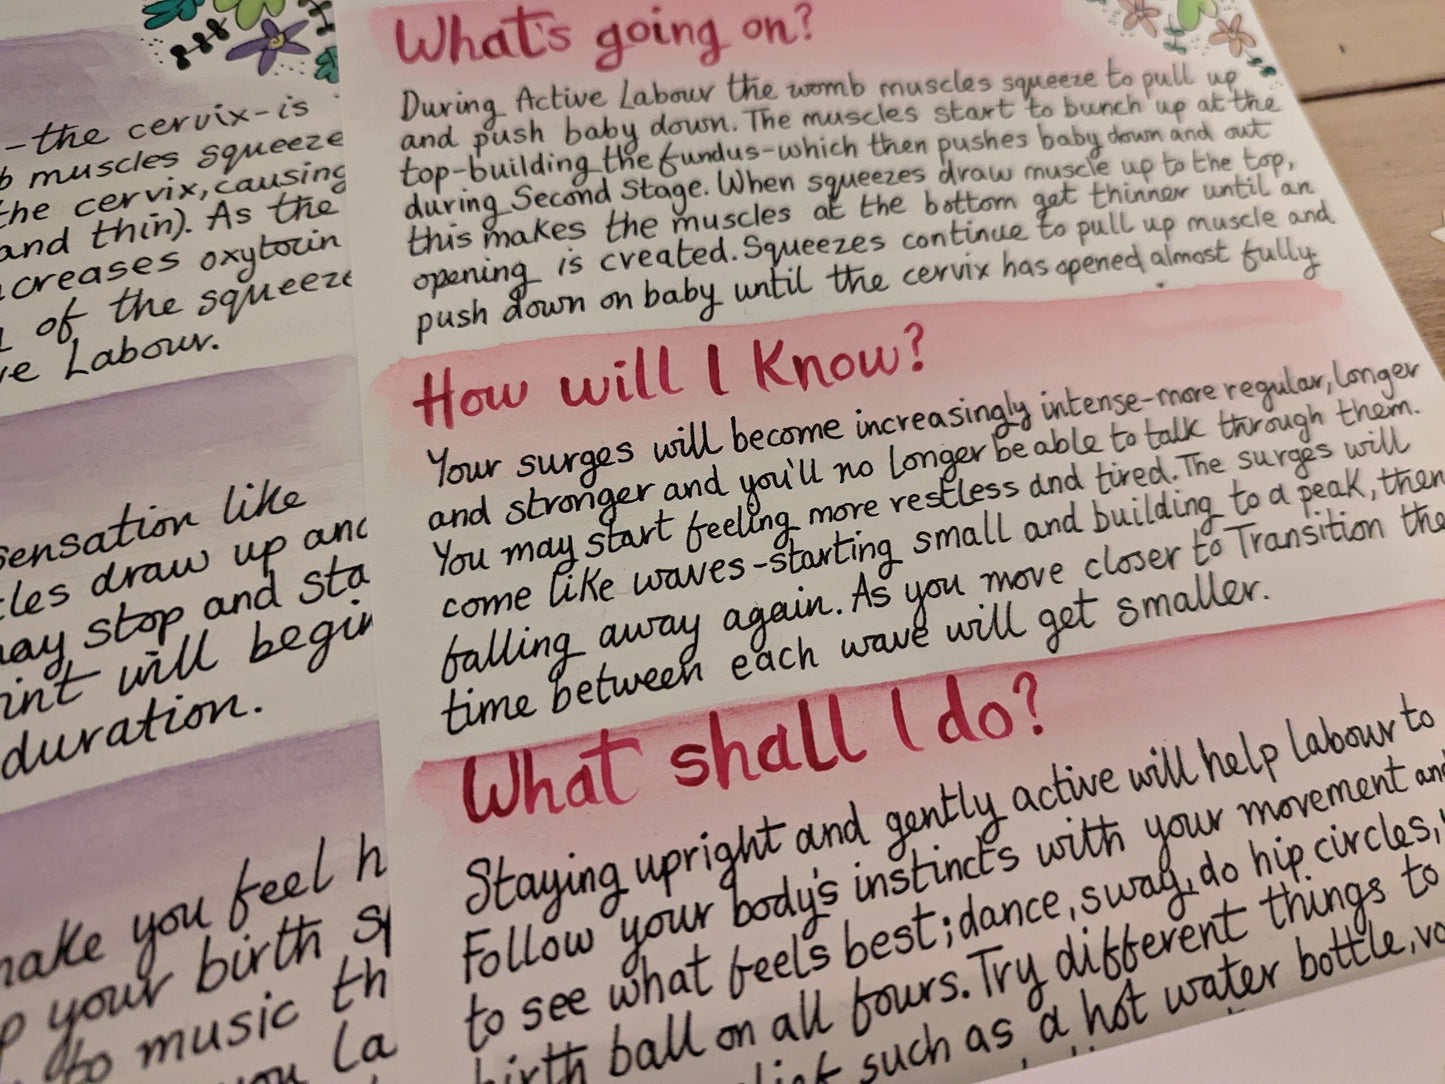 -the cervix-is
muscles squeeze
the cervix, causing
and thin). As the
creases oxytocin
of the squeeze
Labour.
sensation like
draw up and
stop and sta
will begin
duration.
make you feel h
your birth sp
to music th
you La
What's going on?
During Active Labour the womb muscles squeeze to pull up
and push baby down. The muscles start to bunch up at the
top-building the fundus-which then pushes baby down and out
during Second Stage. When squeezes draw muscle up to the top,
this makes the muscles at the bottom get thinner until an
opening is created. Squeezes continue to pull up muscle and
push down on baby until the cervix has opened almost fully
How will I Know?
Your surges will become increasingly intense-more regular, longer
and stronger and you'll no longer be able to talk through them.
You may start feeling more restless and tired. The surges will
come like waves-starting small and building to a peak, then
falling away again. As you move closer to Transition the
time between each wave will get smaller.
What shall I do?
Staying upright and gently active will help labour to
Follow your body's instincts with your movement and
to see what feels best; dance, sway, do hip circles,
birth ball on all fours. Try different things to
such as a hot water bottle,